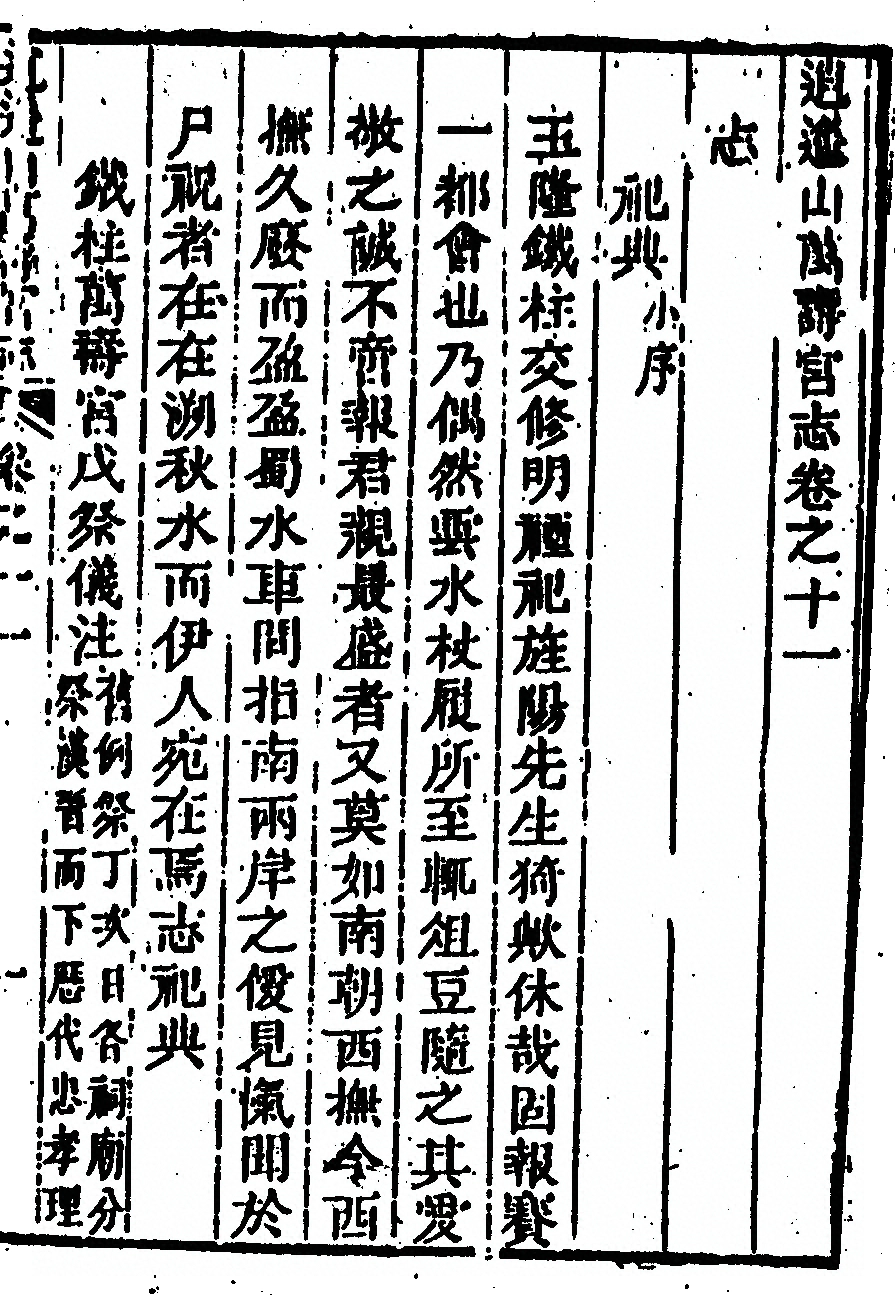 逍遙山萬壽宮志卷之十一
志
祀典小序
玉隆鐵柱交修明禋祀旌陽先生猗歟休哉固報賽
一都會也乃偶然雲水杖履所至輒俎豆隨之其愛
敬之誠不啻報君親最盛者又莫如南朝西撫今西
撫久廢而盈盈蜀水車間指南兩岸之僾見愾聞於
尸祝者在在溯秋水而伊人宛在焉志祀典
鐵柱萬壽宮戊祭儀注舊例祭丁次日各祠廟分
祭漢晉而下歷代忠孝理